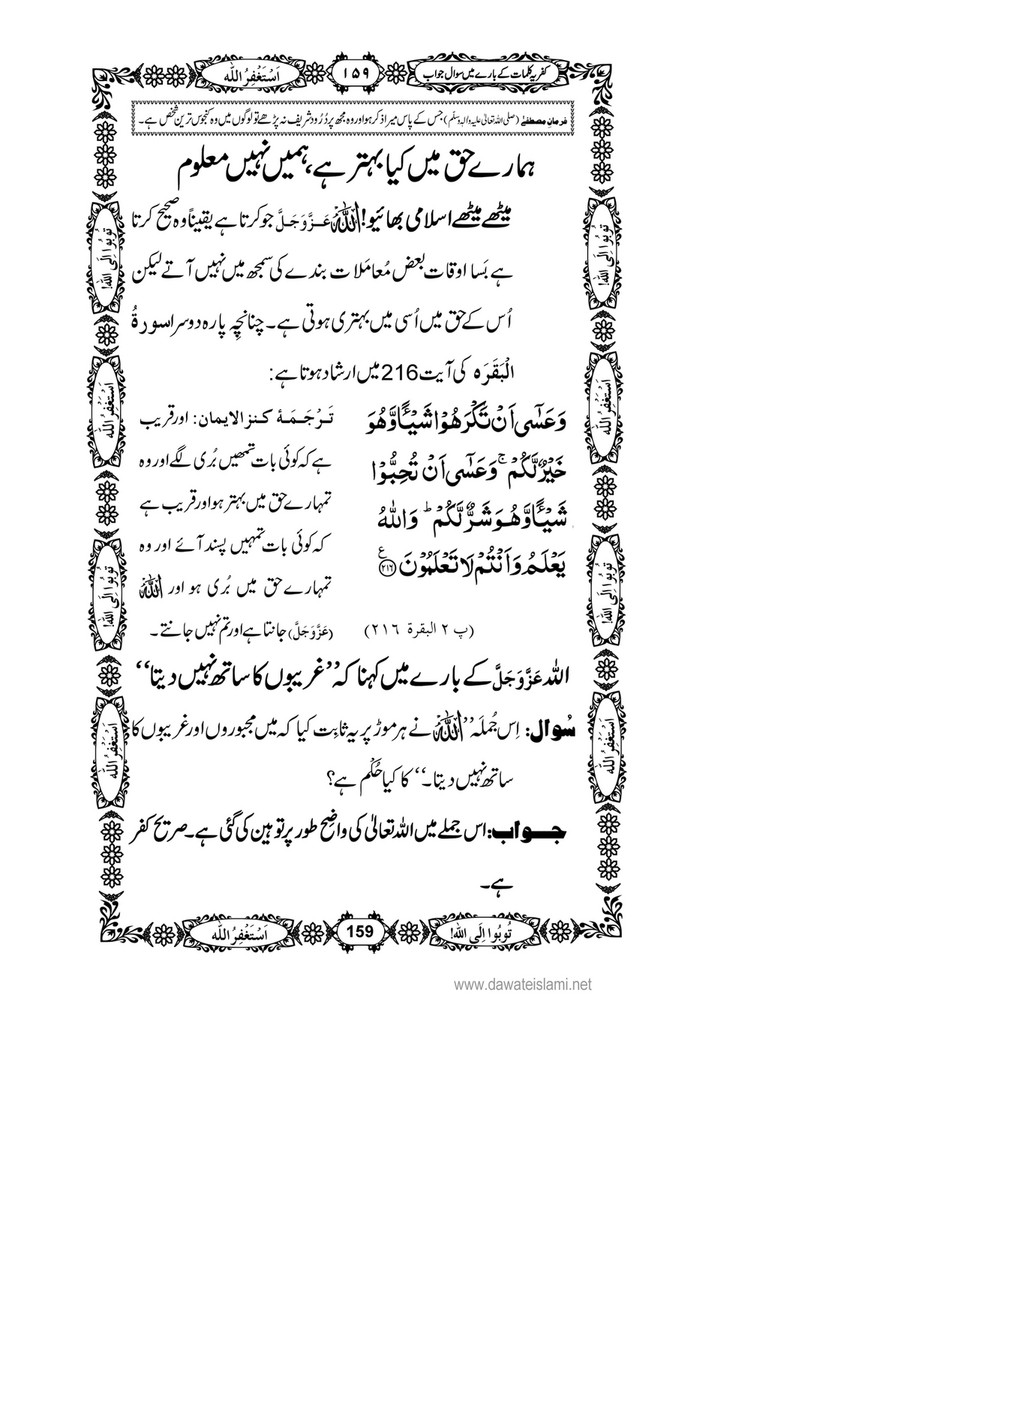 کفریہ کلمات کے بارے میں سوال جواب
۱۵۹
اَسْتَغْفِرُ اللّٰه
فرمانِ مصطفےٰ (صلی اللہ تعالیٰ علیہ والہ وسلّم) جس کے پاس میرا ذکر ہو اور وہ مجھ پر دُرُود شریف نہ پڑھے تو لوگوں میں وہ کنجوس ترین شخص ہے۔
ہمارے حق میں کیا بہتر ہے، ہمیں نہیں معلوم
میٹھے میٹھے اسلامی بھائیو! اللّٰہ عَزَّوَجَلَّ جو کرتا ہے یقیناً وہ صحیح کرتا
ہے بَسا اوقات بعض مُعامَلات بندے کی سمجھ میں نہیں آتے لیکن
اُس کے حق میں اُسی میں بہتری ہوتی ہے۔ چنانچِہ پارہ دوسرا سورۃُ
الْبَقَرَہ کی آیت 216 میں ارشاد ہوتا ہے:
وَعَسٰۤی اَنْ تَكْرَهُوْا شَیْــٴًـا وَّ هُوَ
خَیْرٌ لَّكُمْۚ وَ عَسٰۤی اَنْ تُحِبُّوْا
شَیْــٴًـا وَّ هُوَ شَرٌّ لَّكُمْؕ وَ اللّٰهُ
یَعْلَمُ وَ اَنْتُمْ لَا تَعْلَمُوْنَ ﴿۲۱۶﴾ ع
(پ ۲ البقرۃ ۲۱٦)
تَرْجَمَۂ کنز الایمان: اور قریب
ہے کہ کوئی بات تمھیں بُری لگے اور وہ
تمہارے حق میں بہتر ہو اور قریب ہے
کہ کوئی بات تمہیں پسند آئے اور وہ
تمہارے حق میں بُری ہو اور اللّٰہ
(عَزَّوَجَلَّ) جانتا ہے اور تم نہیں جانتے۔
اللہ عَزَّوَجَلَّ کے بارے میں کہنا کہ ’’غریبوں کا ساتھ نہیں دیتا‘‘
سُوال: اِس جُملَہ ’’اللّٰہ نے ہر موڑ پر یہ ثابِت کیا کہ میں مجبوروں اور غریبوں کا
ساتھ نہیں دیتا۔‘‘ کا کیا حُکْم ہے؟
جواب: اس جملے میں اللہ تعالیٰ کی واضح طور پر توہین کی گئی ہے۔ صریح کفر
ہے۔
تُوبُوا اِلَی اللّٰه!
اَسْتَغْفِرُ اللّٰه
تُوبُوا اِلَی اللّٰه!
اَسْتَغْفِرُ اللّٰه
تُوبُوا اِلَی اللّٰه!
اَسْتَغْفِرُ اللّٰه
تُوبُوا اِلَی اللّٰه!
اَسْتَغْفِرُ اللّٰه
تُوبُوا اِلَی اللّٰه!
159
اَسْتَغْفِرُ اللّٰه
www.dawateislami.net